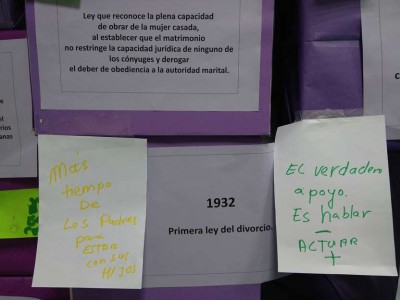 Ley que reconoce la plena capacidad
de obrar de la mujer casada,
al establecer que el matrimonio
no restringe la capacidad jurídica de ninguno de
los cónyuges y derogar
el deber de obediencia a la autoridad marital.
Más
tiempo
De
Los Padres
para
ESTAR
con sus
HIJOS
1932
Primera ley del divorcio.
EL verdadero
apoyo.
Es hablar
–
ACTUAR
+